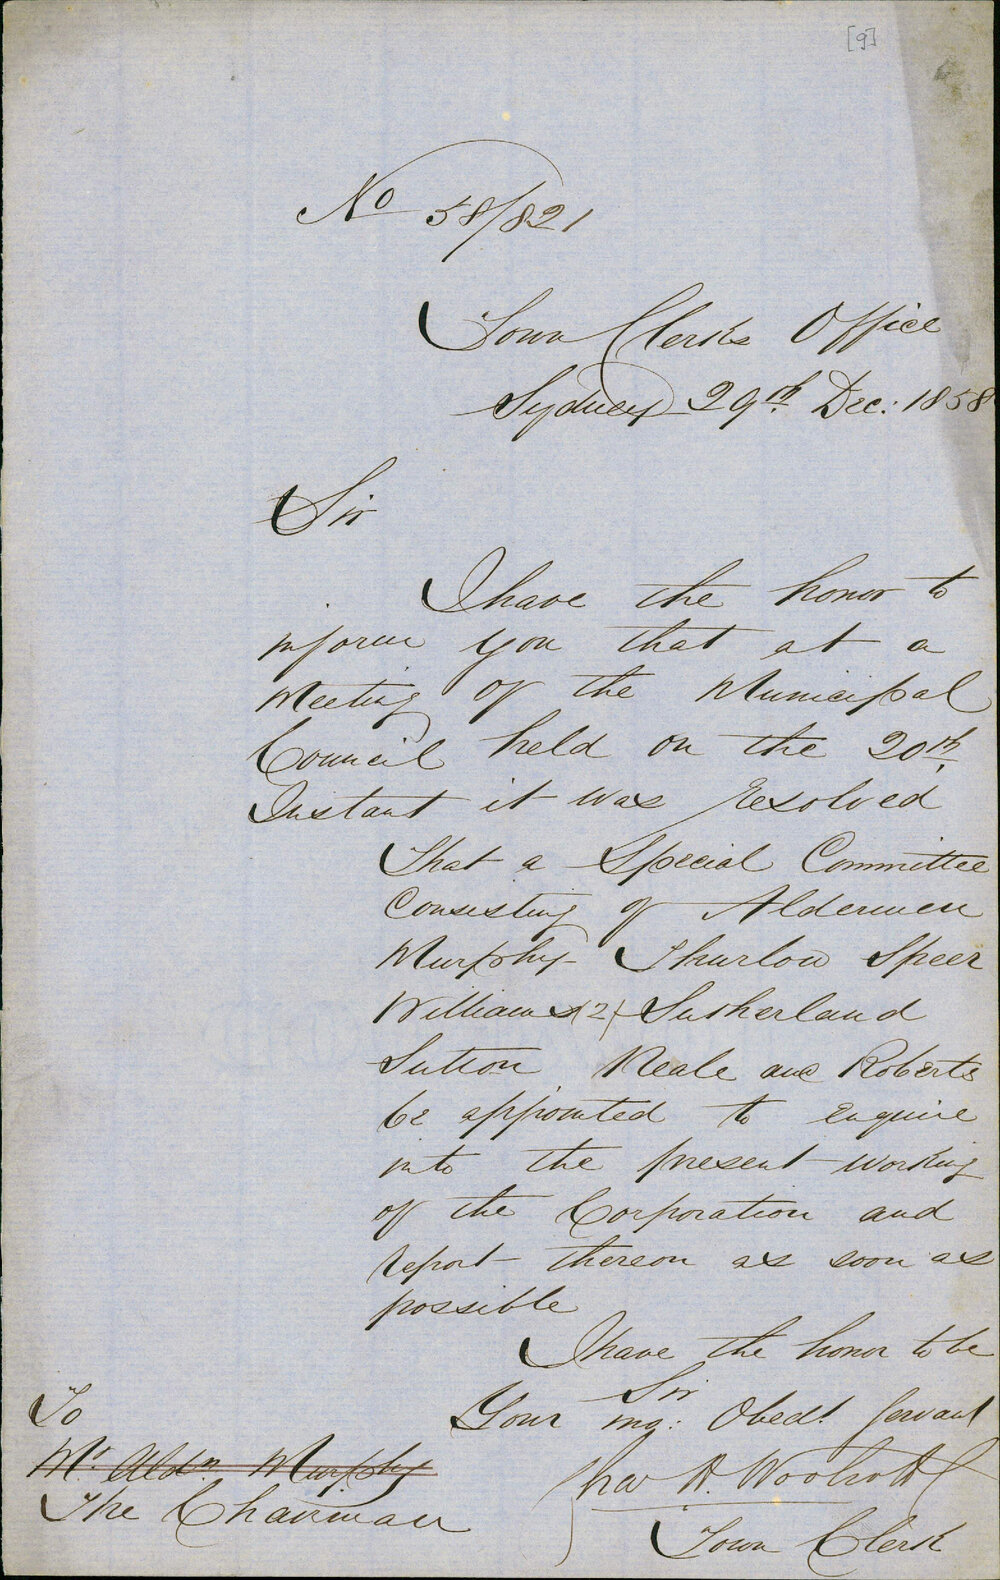 [9]
No 58/821
Town Clerks Office
Sydney 29th Dec: 1858
Sir
I have the honor to
inform you that at a
Meeting of the Municipal
Council held on the 20th
Instant it was resolved
That a Special Committee
Consisting of Aldermen
Murphy Thurlow Speer
Williams (2) Sutherland
Sutton Neale and Roberts
be appointed to enquire
into the present working
of the Corporation and
report thereon as soon as
possible
I have the honor to be
Sir
Your mo: Obedt Servant
Chas H. Woolcott
Town Clerk
To
Mr Aldn Murphy
The Chairman